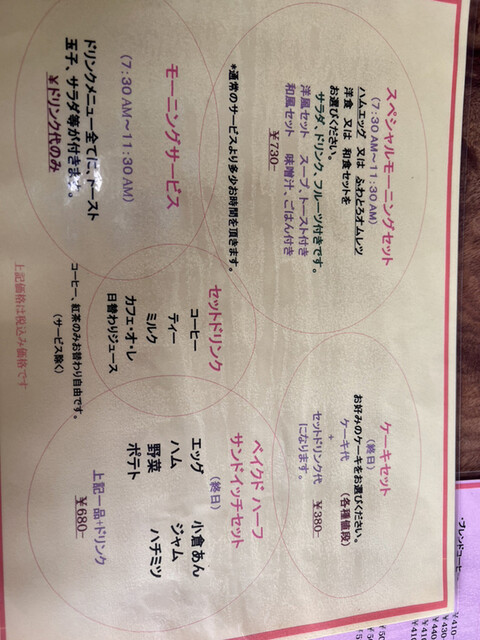 スペシャルモーニングセット
(7:30AM~11:30AM)
ハムエッグ 又は ふわとろオムレツ
洋食 又は 和食セットを
お選びください。
サラダ、ドリンク、フルーツ付きです。
洋風セット スープ、トースト付き
和風セット 味噌汁、ごはん付き
¥730-
*通常のサービスより多少お時間を頂きます。
モーニングサービス
(7:30AM~11:30AM)
ドリンクメニュー全てに、トースト
玉子、サラダ等が付きます。
¥ドリンク代のみ
ケーキセット
(終日)
お好みのケーキをお選びください。
ケーキ代 (各種値段)
+
セットドリンク代 ¥380-
になります。
セットドリンク
コーヒー
ティー
ミルク
カフェ・オ・レ
日替わりジュース
コーヒー、紅茶のみお替わり自由です。
(サービス除く)
ベイクド ハーフ
サンドイッチセット
(終日)
エッグ 小倉あん
ハム ジャム
野菜 ハチミツ
ポテト
上記一品+ドリンク
¥680-
上記価格は税込み価格です
・ブレンドコーヒー
¥410-
¥430-
¥440-
¥410